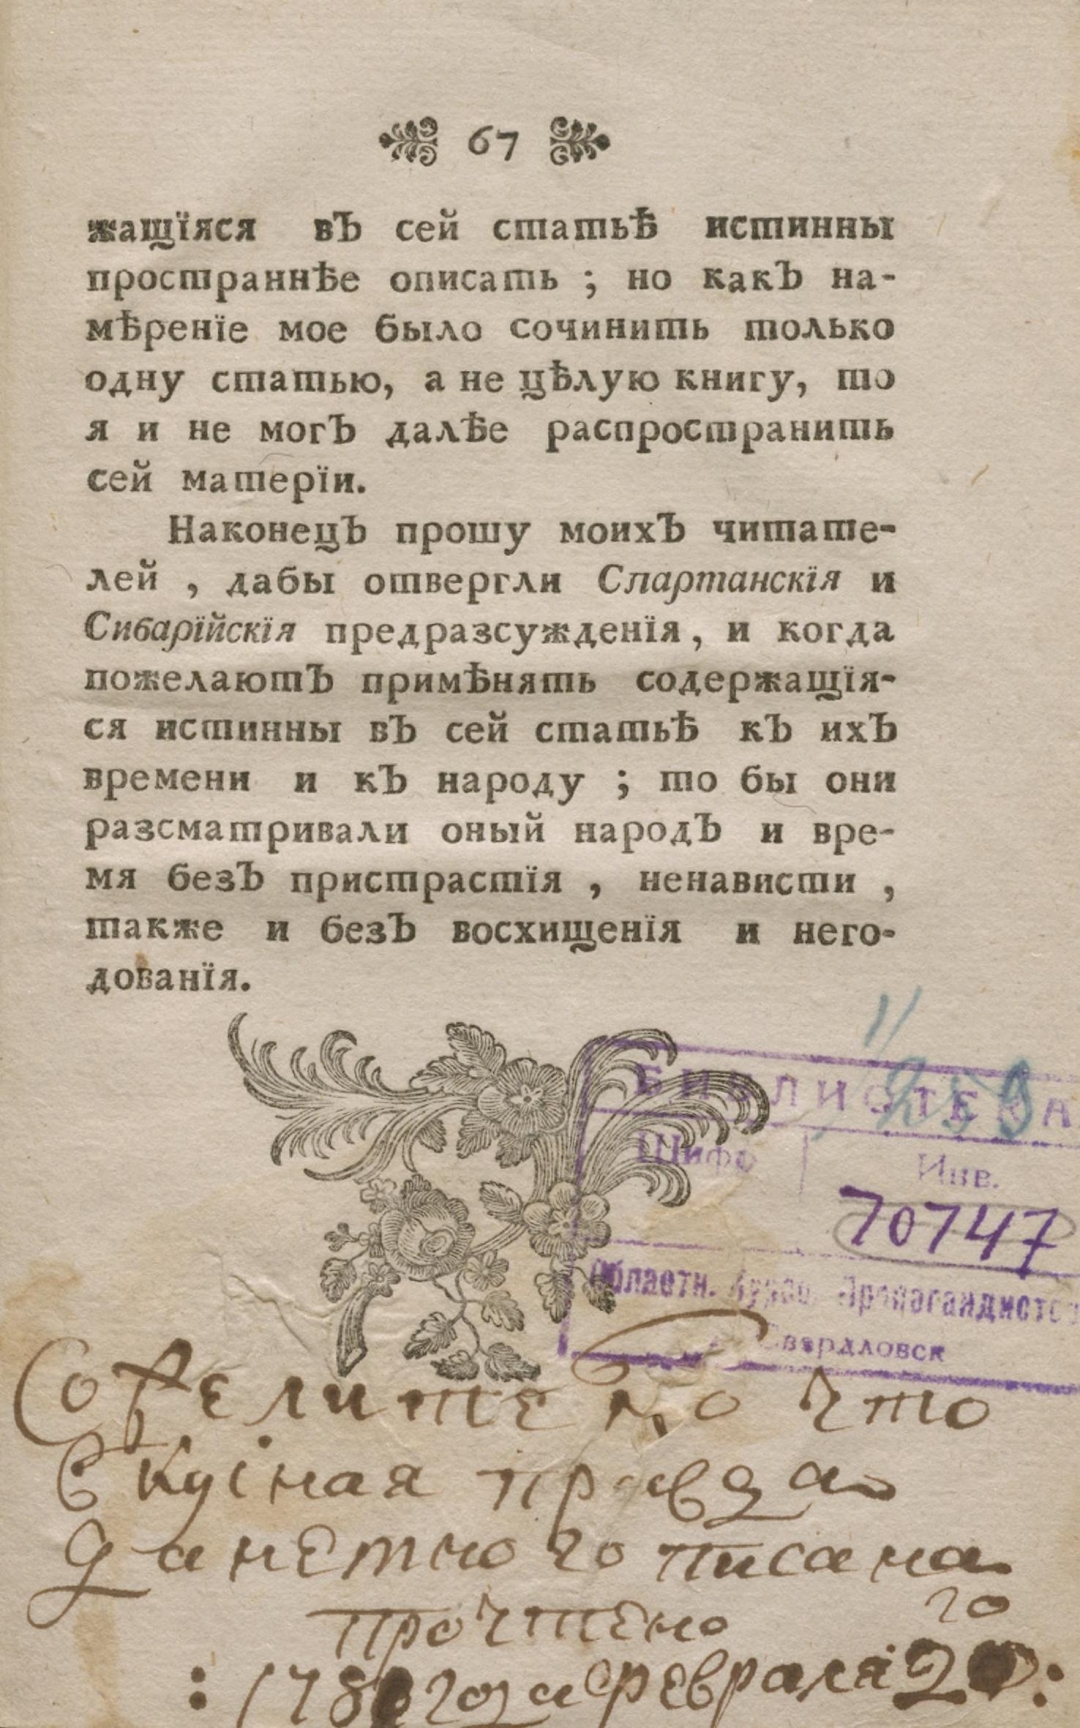 67
жащїяся въ сей статьѣ истинны
пространнѣе описать ; но какъ на-
мѣренїе мое было сочинить только
одну статью, а не цѣлую книгу, то
я и не могъ далѣе распространить
сей матерїи.
Наконецъ прошу моихъ читате-
лей , дабы отвергли Спартанскїя и
Сибарїйскїя предразсужденїя, и когда
пожелаютъ примѣнять содержащїя-
ся истинны въ сей статьѣ къ ихъ
времени и къ народу ; то бы они
разсматривали оный народъ и вре-
мя безъ пристрастїя , ненависти ,
также и безъ восхищенїя и него-
дованїя.
1/259
БИБЛИОТЕКА
Шифр
Инв.
70747
Областн. Курсов Пропагандистов
Свердловск
что
правда
писана
прочтено
го
февраля